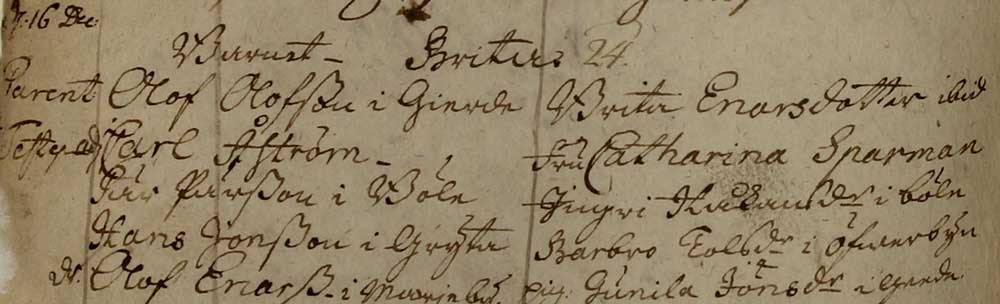 16 Dec:
Barnet - Britas 24.
Parent: Olof Olofsßon i Gierde Brita Enarsdotter ibid
Testes Carl Åström - Fru Catharina Sparman
Pär Pärßon i Böle Ingri Håkansdr i böle
Hans Jonßon i Gryta Barbro Tolsdr i Öfwerbyn
dr. Olof Enarß. i pig. Gunila Jönsdr i gierde